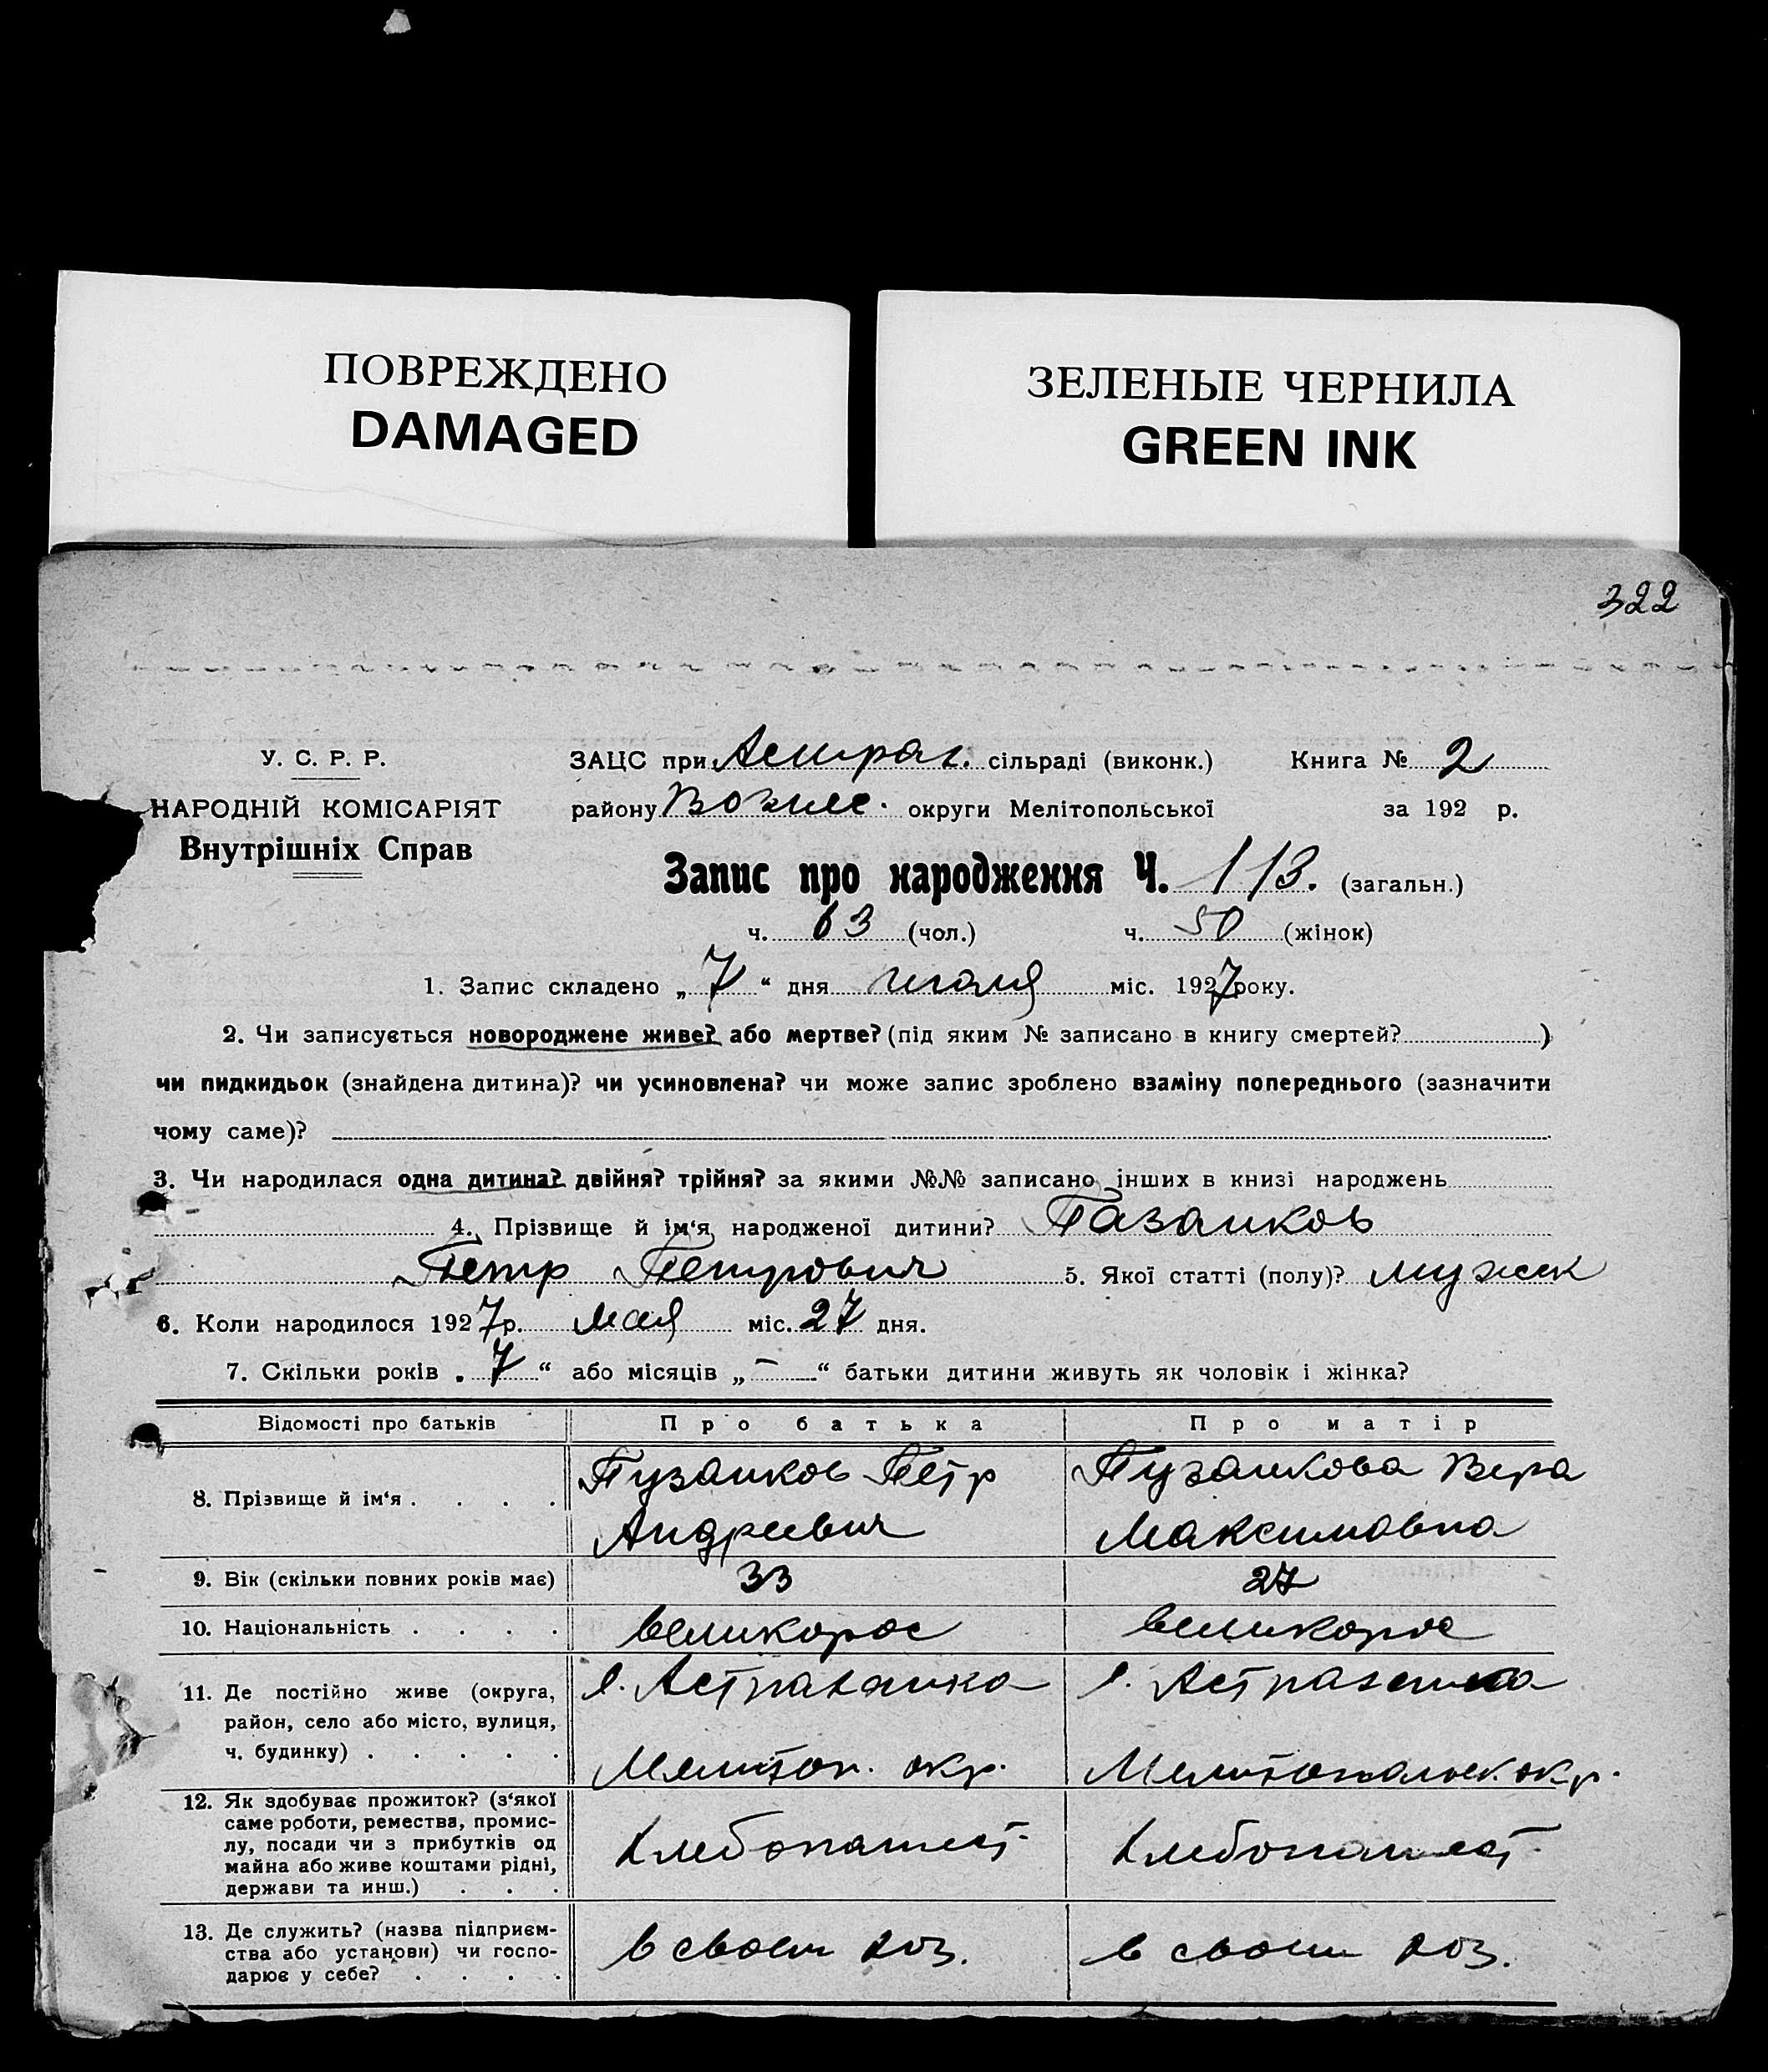 ПОВРЕЖДЕНО
DAMAGED
ЗЕЛЕНЫЕ ЧЕРНИЛА
GREEN INK
322
У. С. Р. Р.
НАРОДНІЙ КОМІСАРІЯТ
Внутрішніх Справ
ЗАЦС при Астрах. сільраді (виконк.) Книга № 2
району Вознес. округи Мелітопольської за 192 р.
Запис про народження Ч. 113. (загальн.)
ч. 63 (чол.) ч. 50 (жінок)
1. Запис складено „ 7 “ дня июля міс. 1927 року.
2. Чи записується новороджене живе? або мертве? (під яким № записано в книгу смертей? )
чи пидкидьок (знайдена дитина)? чи усиновлена? чи може запис зроблено взаміну попереднього (зазначити
чому саме)?
3. Чи народилася одна дитина? двійня? трійня? за якими №№ записано інших в книзі народжень
4. Прізвище й ім‘я народженої дитини? Пазанков
Петр Петрович 5. Якої статті (полу)? мужск
6. Коли народилося 1927 р. мая міс. 27 дня.
7. Скільки років „ 7 “ або місяців „ — “ батьки дитини живуть як чоловік і жінка?
Відомості про батьків Про батька Про матір
8. Прізвище й ім‘я . . . .
Пузанков Петр
Андреевич
Пузанкова Вера
Максимовна
9. Вік (скільки повних років має) 33 27
10. Національність . . . . великорос великорос
11. Де постійно живе (округа,
район, село або місто, вулиця,
ч. будинку) . . . . .
с. Астраханка
Мелитоп. окр.
с. Астраханка
Мелитопольск. окр.
12. Як здобуває прожиток? (з‘якої
саме роботи, ремества, промис-
лу, посади чи з прибутків од
майна або живе коштами рідні,
держави та инш.) . . .
хлебопашест.
хлебопашест.
13. Де служить? (назва підприєм-
ства або установи) чи госпо-
дарює у себе? . . . .
в своем хоз.
в своем хоз.